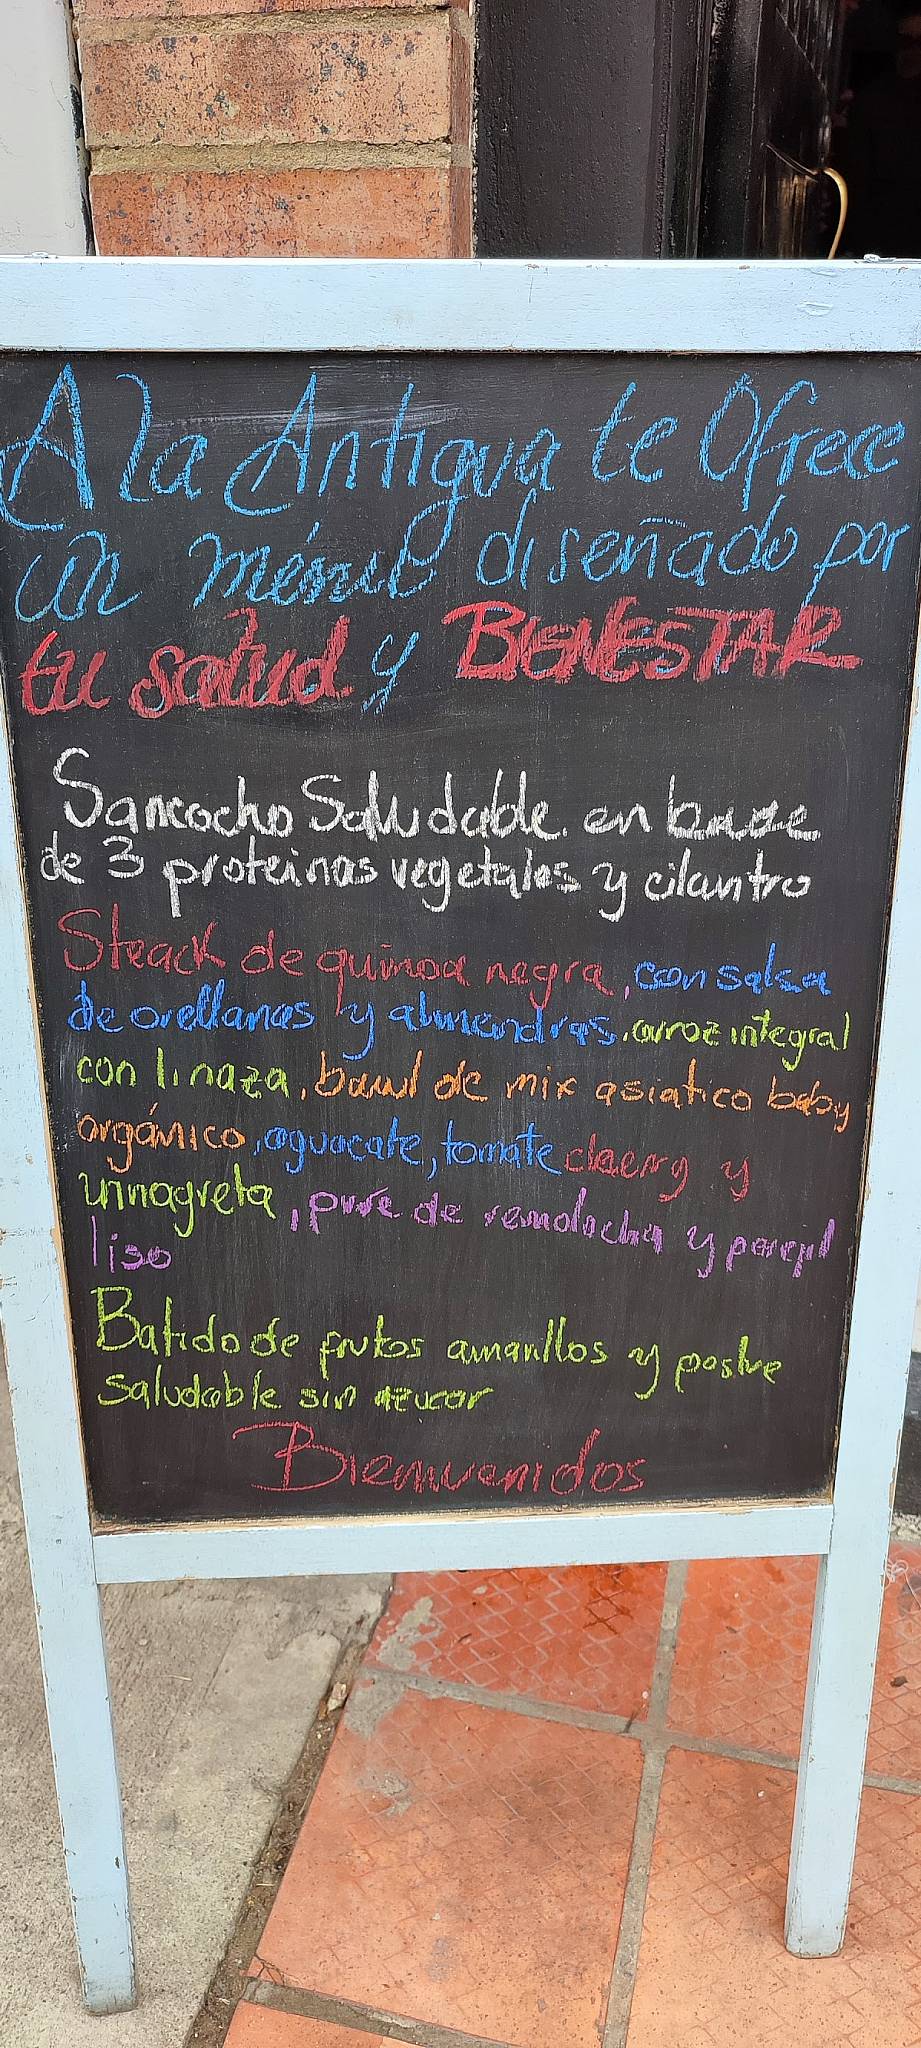 A la Antigua te Ofrece
un ménu diseñado por
tu salud y BIENESTAR
Sancocho Saludable en base
de 3 proteinas vegetales y cilantro
Steack de quinoa negra, con salsa
de orellanas y almendras, arroz integral
con linaza, bawl de mix asiatico baby
orgánico, aguacate, tomate cherry y
vinagreta, pure de remolacha y perejil
liso
Batido de frutos amarillos y postre
saludable sin azucar
Bienvenidos